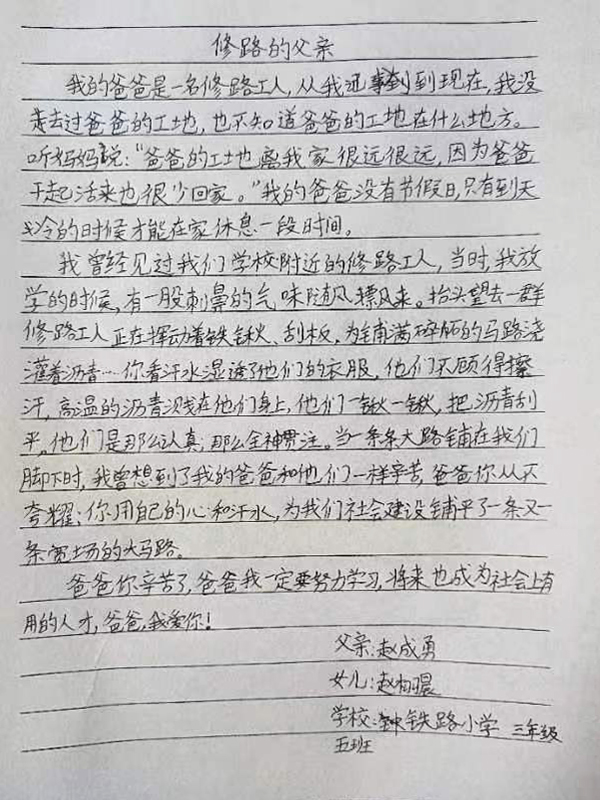 修路的父亲
我的爸爸是一名修路工人,从我记事到到现在,我没
走去过爸爸的工地,也不知道爸爸的工地在什么地方。
听妈妈说:“爸爸的工地离我家很远很远,因为爸爸
干起活来也很少回家。”我的爸爸没有节假日,只有到天
冷的时候才能在家休息一段时间。
我曾经见过我们学校附近的修路工人,当时,我放
学的时候,有一股刺鼻的气味随风飘风来。抬头望去一群
修路工人正在挥动着铁锹、刮板,为铺满碎石的马路浇
灌着沥青…你看汗水湿透了他们的衣服,他们不顾得擦
汗,高温的沥青溅在他们身上,他们一锹一锹,把沥青刮
平。他们是那么认真,那么全神贯注。当一条条大路铺在我们
脚下时,我曾想到了我的爸爸和他们一样辛苦,爸爸你从不
夸耀;你用自己的心和汗水,为我们社会建设铺平了一条又一
条宽场的大马路。
爸爸你辛苦了,爸爸我一定要努力学习,将来也成为社会上有
用的人才,爸爸,我爱你!
父亲:赵成勇
女儿:赵
学校:铁路小学 三年级
五班